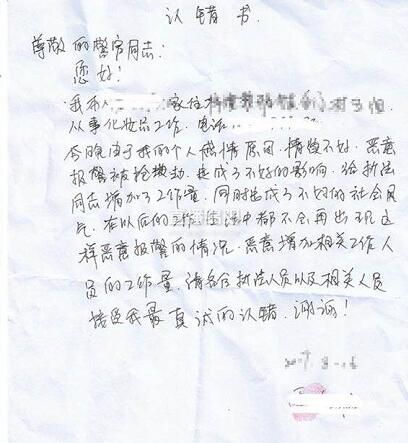 认错书.
尊敬的警官同志:
您好!
我本人 家住
从事化妆品工作. 电话
今晚由于我的个人感情原因, 情绪不好. 恶意
报警被抢 造成了不好的影响. 给执法
同志增加了工作量. 同时造成了不好的社会风
气. 在以后的工作生活中都不会再出现这
样恶意报警的情况. 恶意增加相关工作人
员的工作量. 请各位执法人员以及相关人员
接受我最真诚的认错. 谢谢!